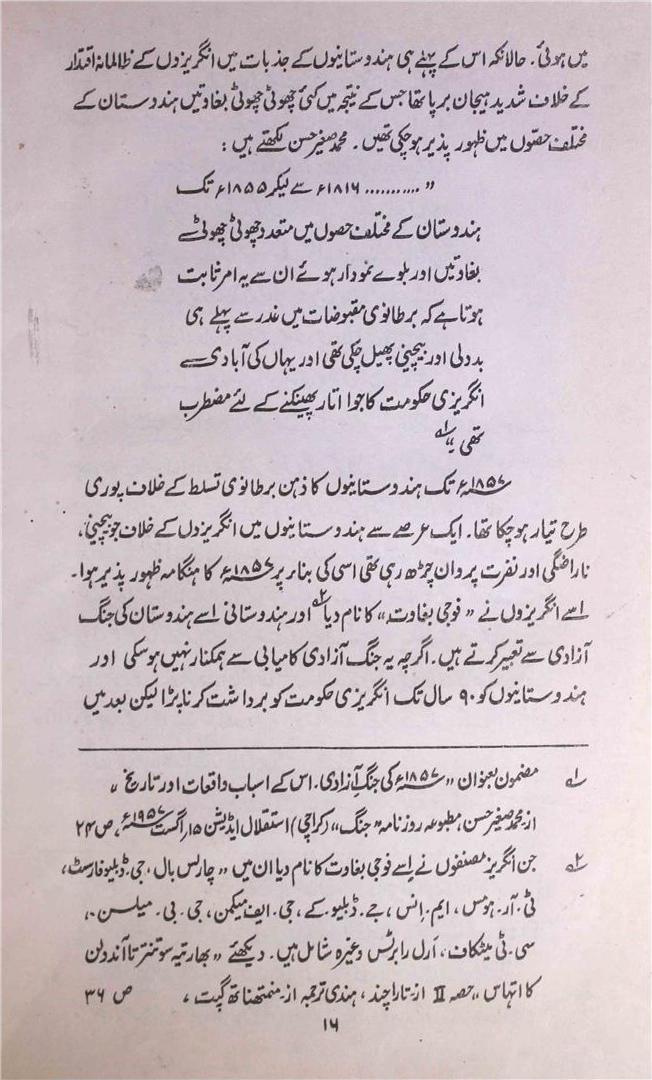 میں ہوئی۔ حالانکہ اس کے پہلے ہی ہندوستانیوں کے جذبات میں انگریزوں کے ظالمانہ اقتدار
کے خلاف شدید ہیجان برپا تھا جس کے نتیجہ میں کئی چھوٹی چھوٹی بغاوتیں ہندوستان کے
مختلف حصّوں میں ظہور پذیر ہو چکی تھیں۔ محمد صغیر حسن لکھتے ہیں :
" ........... ۱۸۱۶ء سے لیکر ۱۸۵۵ء تک
ہندوستان کے مختلف حصوں میں متعدد چھوٹی چھوٹی سے
بغاوتیں اور بلوے نمودار ہوئے ان سے یہ امر ثابت
ہوتا ہے کہ برطانوی مقبوضات میں غدر سے پہلے ہی
بددلی اور بیچینی پھیل چکی تھی اور یہاں کی آبادی سے
انگریزی حکومت کا جوا اتار پھینکنے کے لئے مضطرب
تھی ۔"۱؎
۱۸۵۷ء تک ہندوستانیوں کا ذہن برطانوی تسلط کے خلاف پوری
طرح تیار ہو چکا تھا۔ ایک عرصے سے ہندوستانیوں میں انگریزوں کے خلاف جو بیچینی،
ناراضگی اور نفرت پروان چڑھ رہی تھی اسی کی بناء پر ۱۸۵۷ء کا ہنگامہ ظہور پذیر ہوا۔
اسے انگریزوں نے "فوجی بغاوت" کا نام دیا۲؎ اور ہندوستانی اسے ہندوستان کی جنگ
آزادی سے تعبیر کرتے ہیں۔ اگرچہ یہ جنگ آزادی کامیابی سے ہمکنار نہیں ہوسکی اور
ہندوستانیوں کو ۹۰ سال تک انگریزی حکومت کو برداشت کرنا پڑا لیکن بعد میں
۱؎ مضمون بعنوان "۱۸۵۷ء کی جنگِ آزادی۔ اس کے اسباب واقعات اور تاریخ"
از محمد صغیر حسن، مطبوعہ روزنامہ "جنگ" (کراچی) استقلال ایڈیشن ۱۵ اگست ۱۹۵۷ء، ص ۲۴
۲؎ جن انگریز مصنفوں نے اسے فوجی بغاوت کا نام دیا ان میں "چارلس بال، جی۔ ڈبلیو فارسٹ،
ٹی۔ آر۔ ہومس، ایم۔ اِنس، جے۔ ڈبلیو کے، جی۔ ایف میکمن، جی۔ بی۔ میلسن،
سی۔ ٹی میٹکاف، اَرل رابرٹس وغیرہ شامل ہیں۔ دیکھئے "بھارتیہ سوتنترتا آندولن
کا اتہاس" حصہ II از۔ تارا چند، ہندی ترجمہ از۔ منمتھنا تھ گپت، ص ۳۶
۱۶